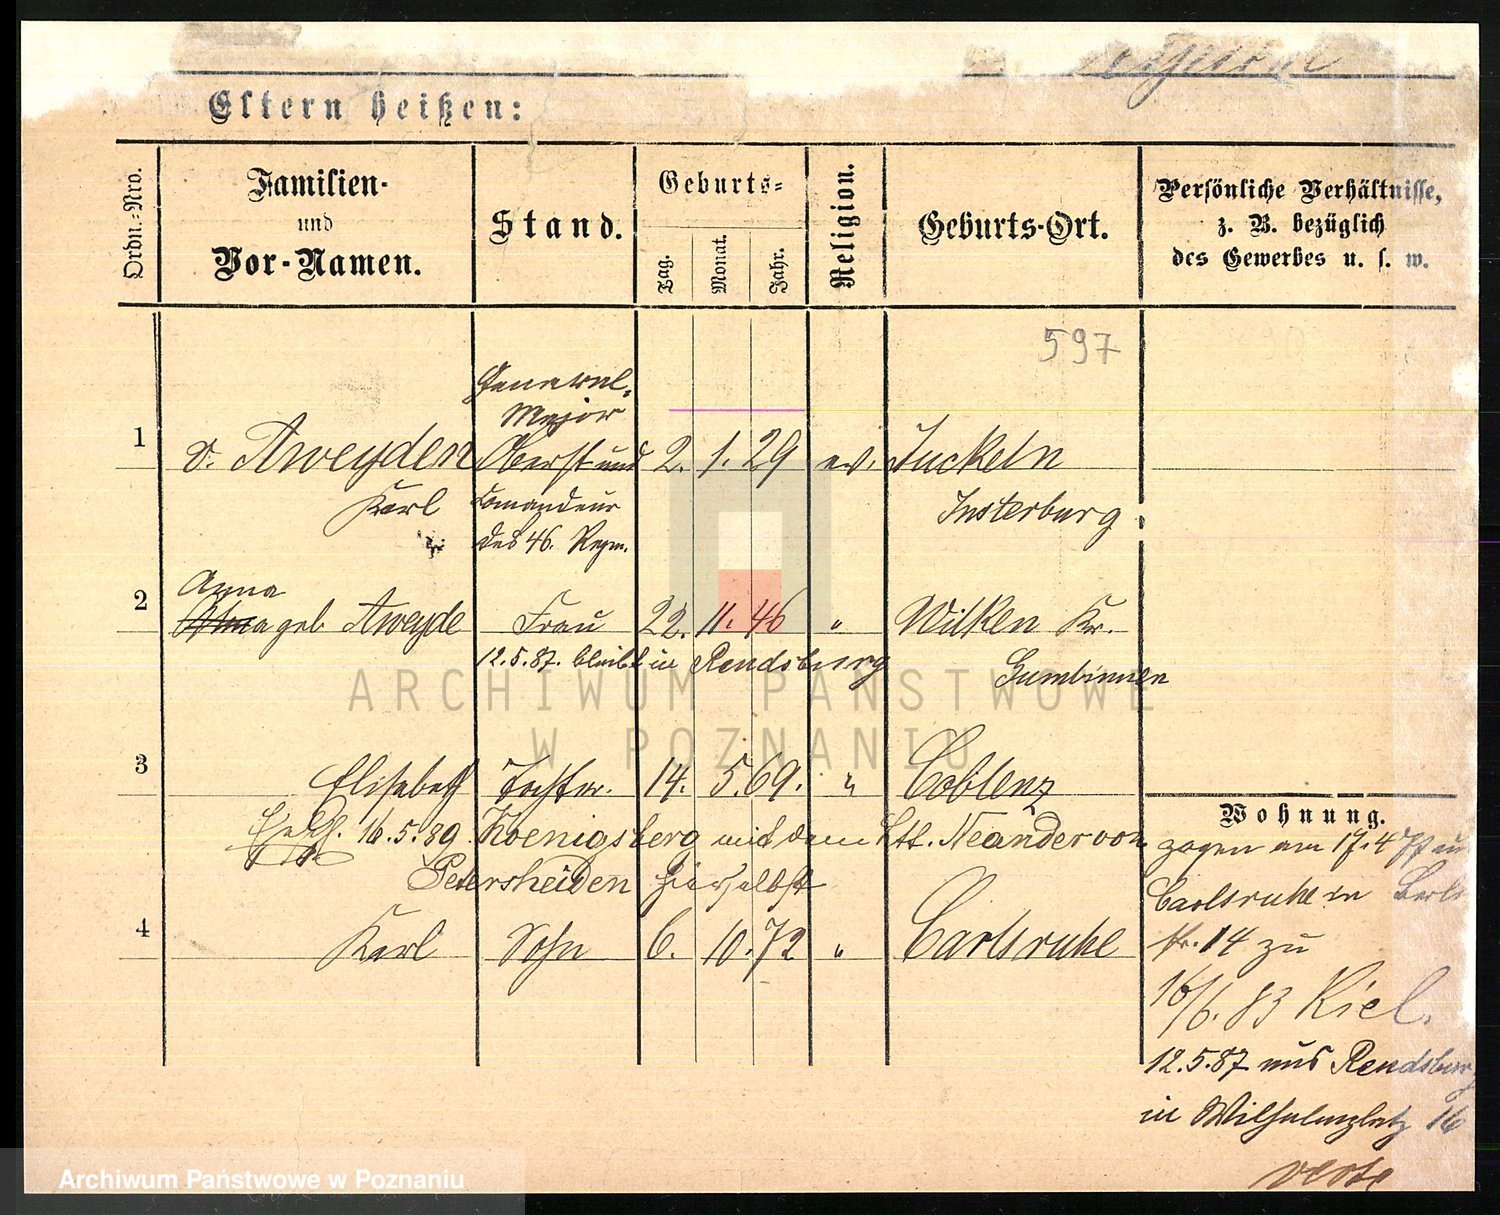 Eltern heißen:
Ordn.-Nro.
Familien-
und
Vor-Namen.
Stand.
Geburts-
Tag.
Monat.
Jahr.
Religion.
Geburts-Ort.
Persönliche Verhältnisse,
z. B. bezüglich
des Gewerbes u. s. w.
597
General-
Major
1 v. Aweyden Oberst und 2. 1. 29 ev. Juckeln
Karl Comandeur Insterburg
des 46. Regm.
Anna
2 geb Aweyde Frau 22. 11. 46 " Wilken Kr.
12.5.87. bleibt in Rendsburg Gumbinnen
ARCHIWUM PAŃSTWOWE
W POZNANIU
3 Elisabeth Tochter. 14. 5. 69. " Coblenz
Wohnung.
16.5.89 Koenigsberg mit dem Ltt. Neander von
Petersheiden hierselbst
4 Karl Sohn 6. 10. 72 " Carlsruhe
zogen am 17.4 77 in
Carlsruhe in
str. 14 zu
16/6. 83 Kiel.
12.5.87 aus Rendsburg
in Wilhelmplatz 16
verte
Archiwum Państwowe w Poznaniu